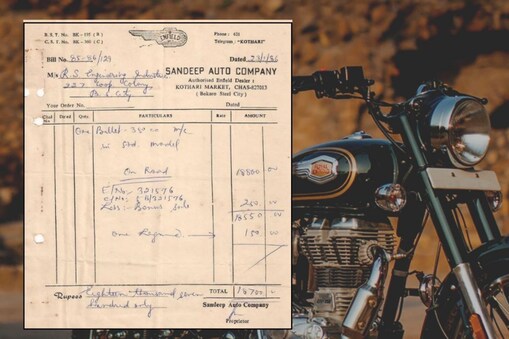 R. S. T. No. BK-135 ( R )
C. S. T. No. BK-100 ( C )
ENFIELD
Phone : 431
Telegram : "KOTHARI"
Bill No. 85-86/129
Dated 23/1/86
SANDEEP AUTO COMPANY
Authorised Enfield Dealer :
KOTHARI MARKET, CHAS-827013
( Bokaro Steel City )
M/s R. S. Engineering Industries
Colony
City
Your Order No. Dated
Qnty. PARTICULARS Rate AMOUNT
One Bullet - 350 cc m/c
Std model
On Road 18800 00
E/No. 721576
C/No. 721576
Less :- Bonus 250 00
18550 00
One 150 00
TOTAL 18700 00
Rupees Eighteen thousand seven
Hundred only
Sandeep Auto Company
Proprietor